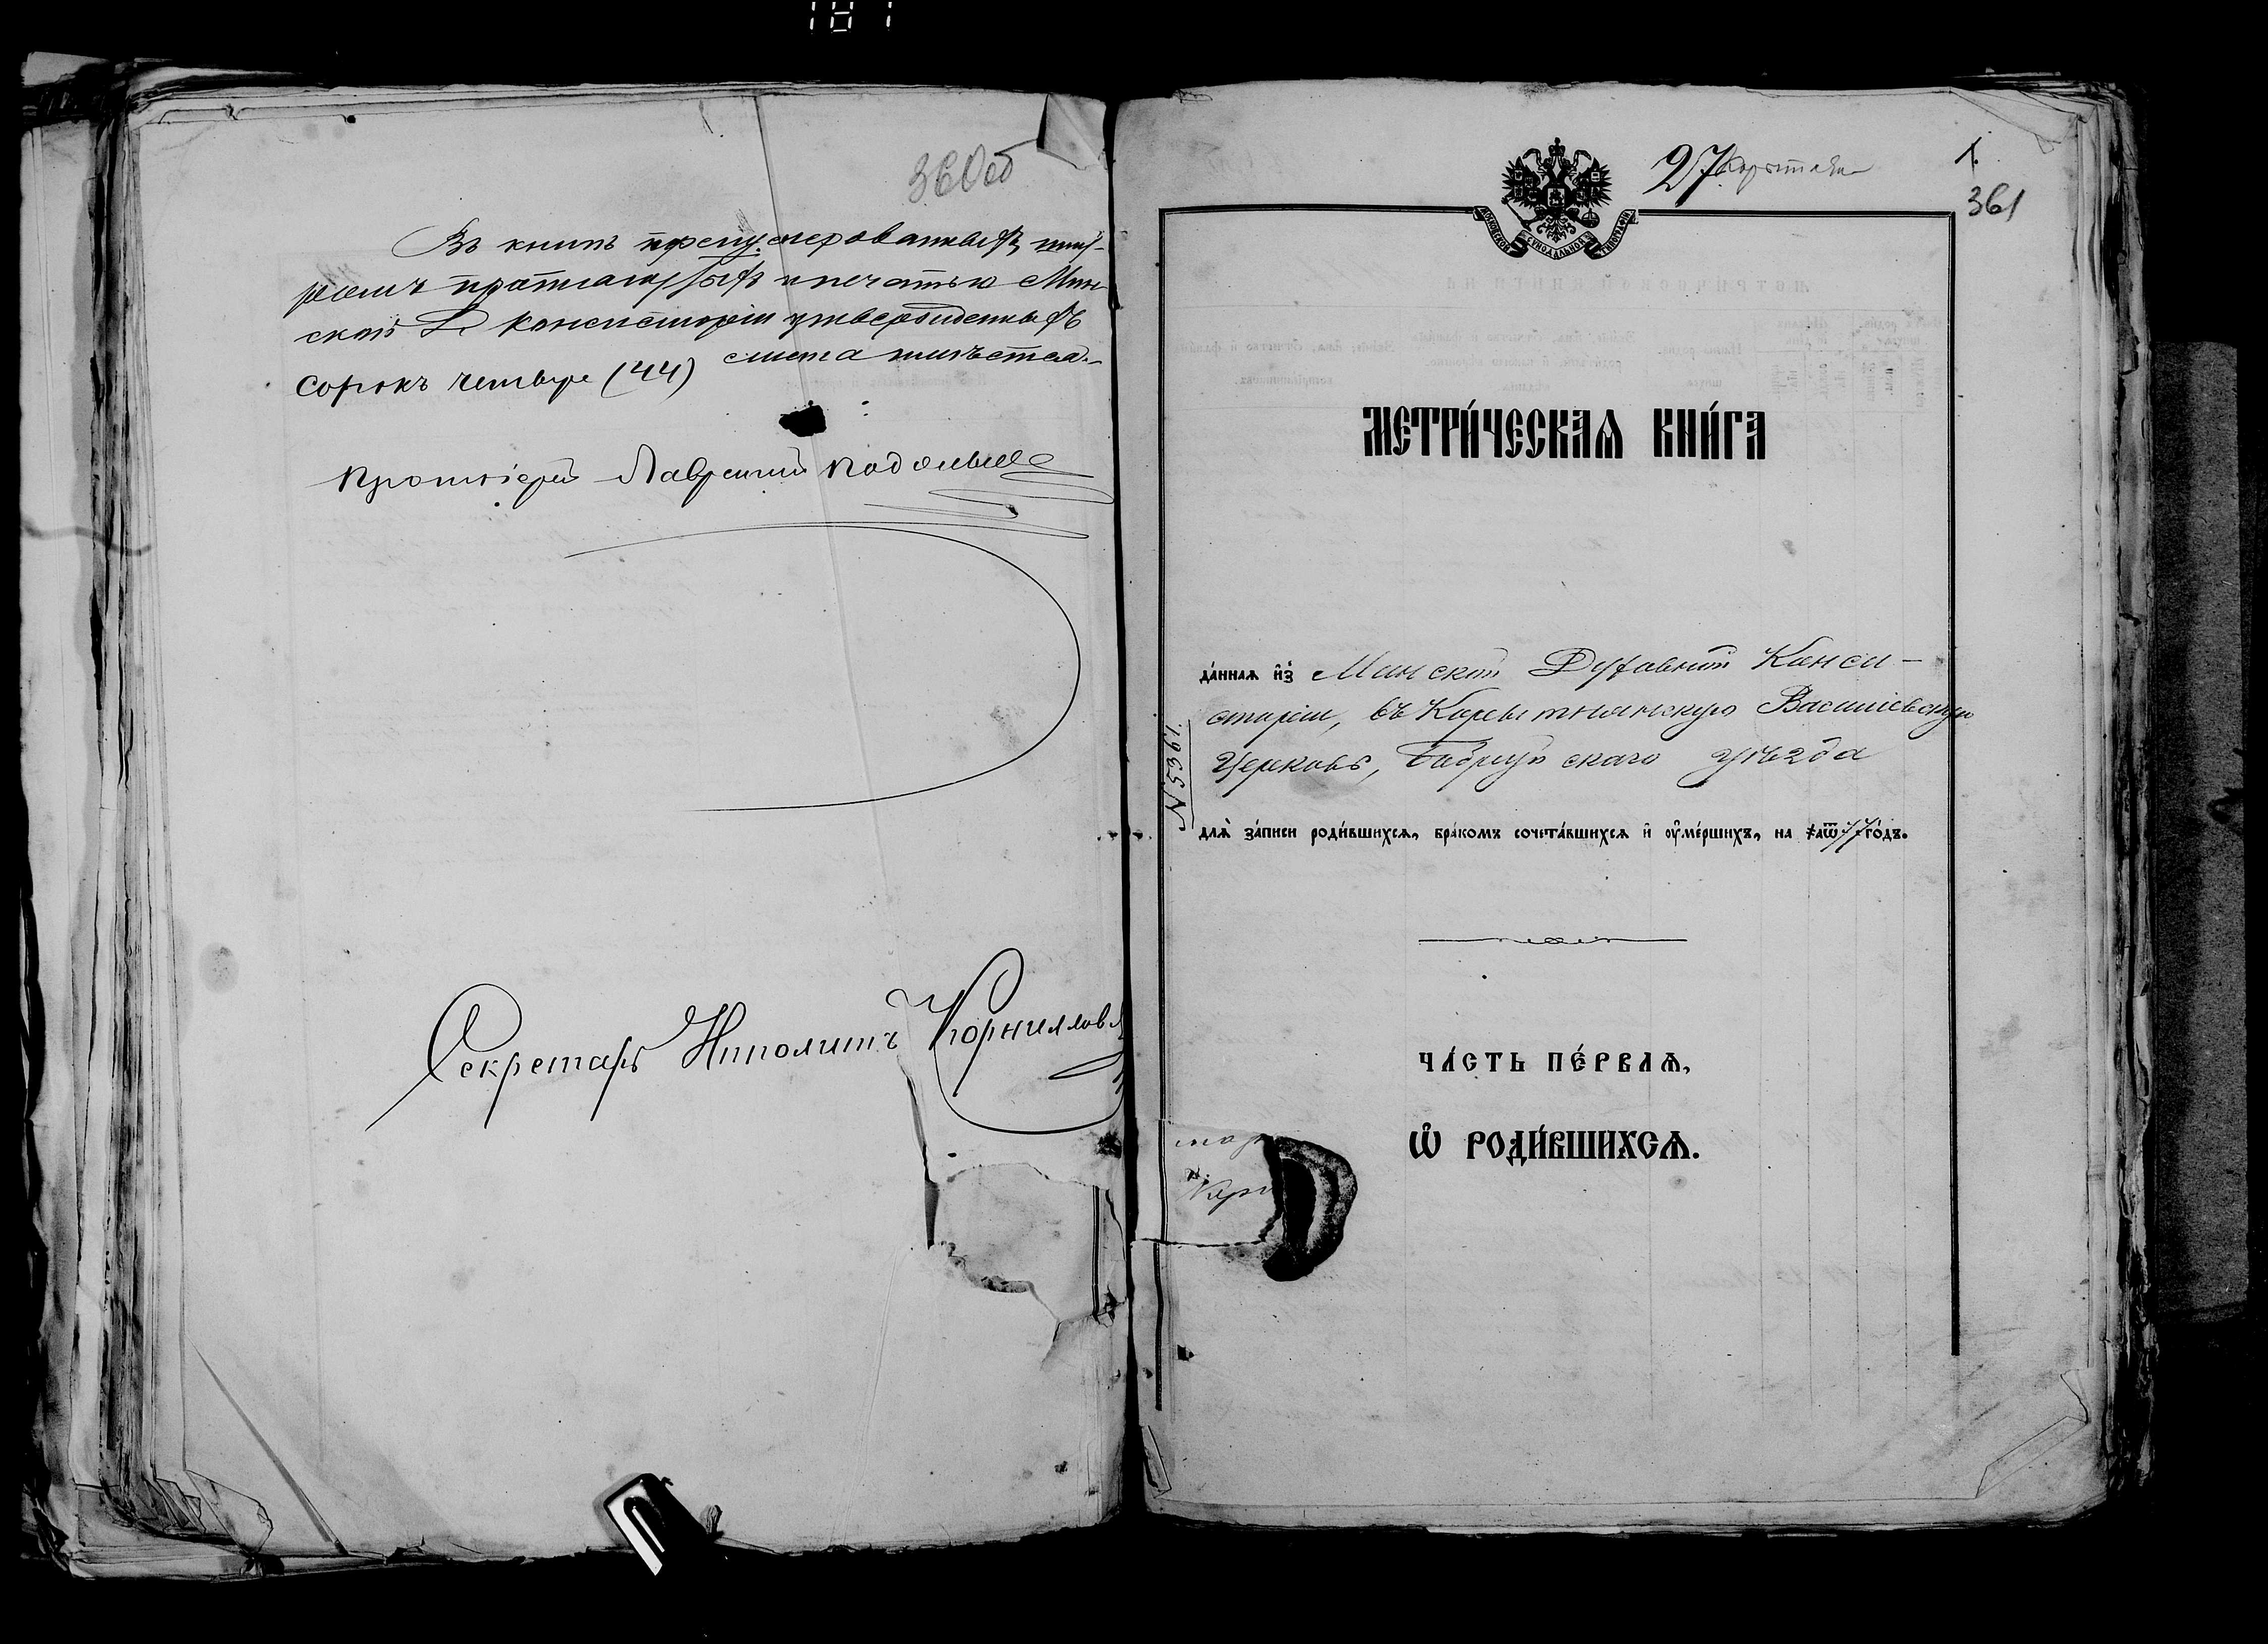 181
360об
Въ книгѣ пренумерованныхъ, шну-
ромъ прошнурован­ныхъ и печатью Мин-
ской Д. Консисторіи утвержденныхъ
листа
сорокъ четыре (44)
Протоіерей Лаврентій
Секретарь Ипполитъ Корнилов
27
1.
361
МОСКОВСКОЙ СѴНОДАЛЬНОЙ ТИПОГРАФІИ
МЕТРИ́ЧЕСКАѦ КНИ́ГА
да́ннаѧ и҆з̾ Минской Духовной Конси-
сторіи, въ Корытнянскую Васильевскую
Церковь, Бобруйскаго уѣзда
N 5361.
длѧ̀ за́писи роди́вшихсѧ, бра́комъ сочета́вшихсѧ и҆ оу҆ме́ршихъ, на ҂аѿ77 го́дъ.
ЧА́СТЬ ПЕ́РВАѦ,
Ѽ РОДИ́ВШИХСѦ.